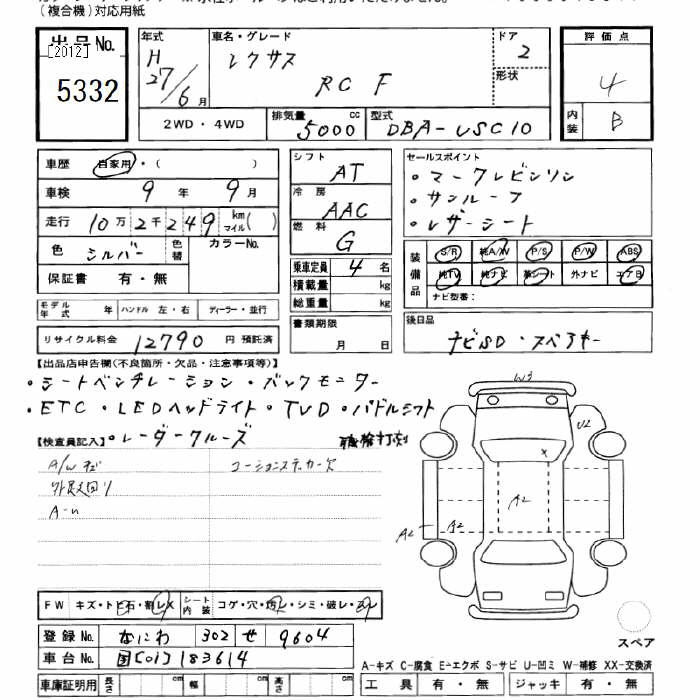 (複合機)対応用紙
出品No.
[2012]
5332
年式
H
27/6月
車名・グレード
レクサス
RC F
ドア
2
形状
2WD・4WD
排気量
5000
cc
型式
DBA-USC10
評価点
4
内装
B
車歴
自家用・( )
車検
9年 9月
走行
10万2千249 km マイル( )
色
シルバー
色替
カラーNo.
保証書
有・無
モデル年式
年
ハンドル 左・右
ディーラー・並行
リサイクル料金
12790
円 預託済
シフト
AT
冷房
AAC
燃料
G
乗車定員 4 名
積載量 kg
総重量 kg
書類期限
月 日
セールスポイント
・マークレビンソン
・サンルーフ
・レザーシート
装備品
S/R 純A/W P/S P/W ABS
純TV 純ナビ 革シート 外ナビ エアB
ナビ型番:
後日品
ナビSD・スペアキー
【出品店申告欄(不良箇所・欠品・注意事項等)】
・シートベンチレーション・バックモニター
・ETC・LEDヘッドライト・TVD・パドルシフト
・レーダークルーズ
職権打刻
【検査員記入】
A/W キズ
コーションステッカー欠
外足廻り
W3
U2
A2
A2
A2
FW
キズ・トビ石・割レX
シート内装
コゲ・穴・汚レ・シミ・破レ・スレ
登録No.
なにわ 302 せ 9604
車台No.
国[01]183614
車庫証明用
長さ cm 幅 cm 高さ cm
スペア
A-キズ C-腐食 E-エクボ S-サビ U-凹ミ W-補修 XX-交換済
工具 有・無 ジャッキ 有・無